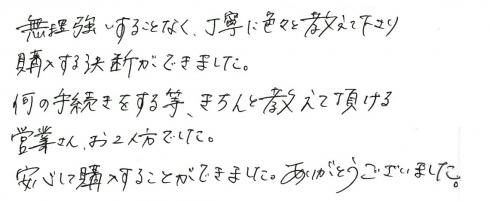 無理強いすることなく、丁寧に色々と教えて下さり
購入する決断ができました。
何の手続きをする等、きちんと教えて頂ける
営業さん、お2人方でした。
安心して購入することができました。ありがとうございました。